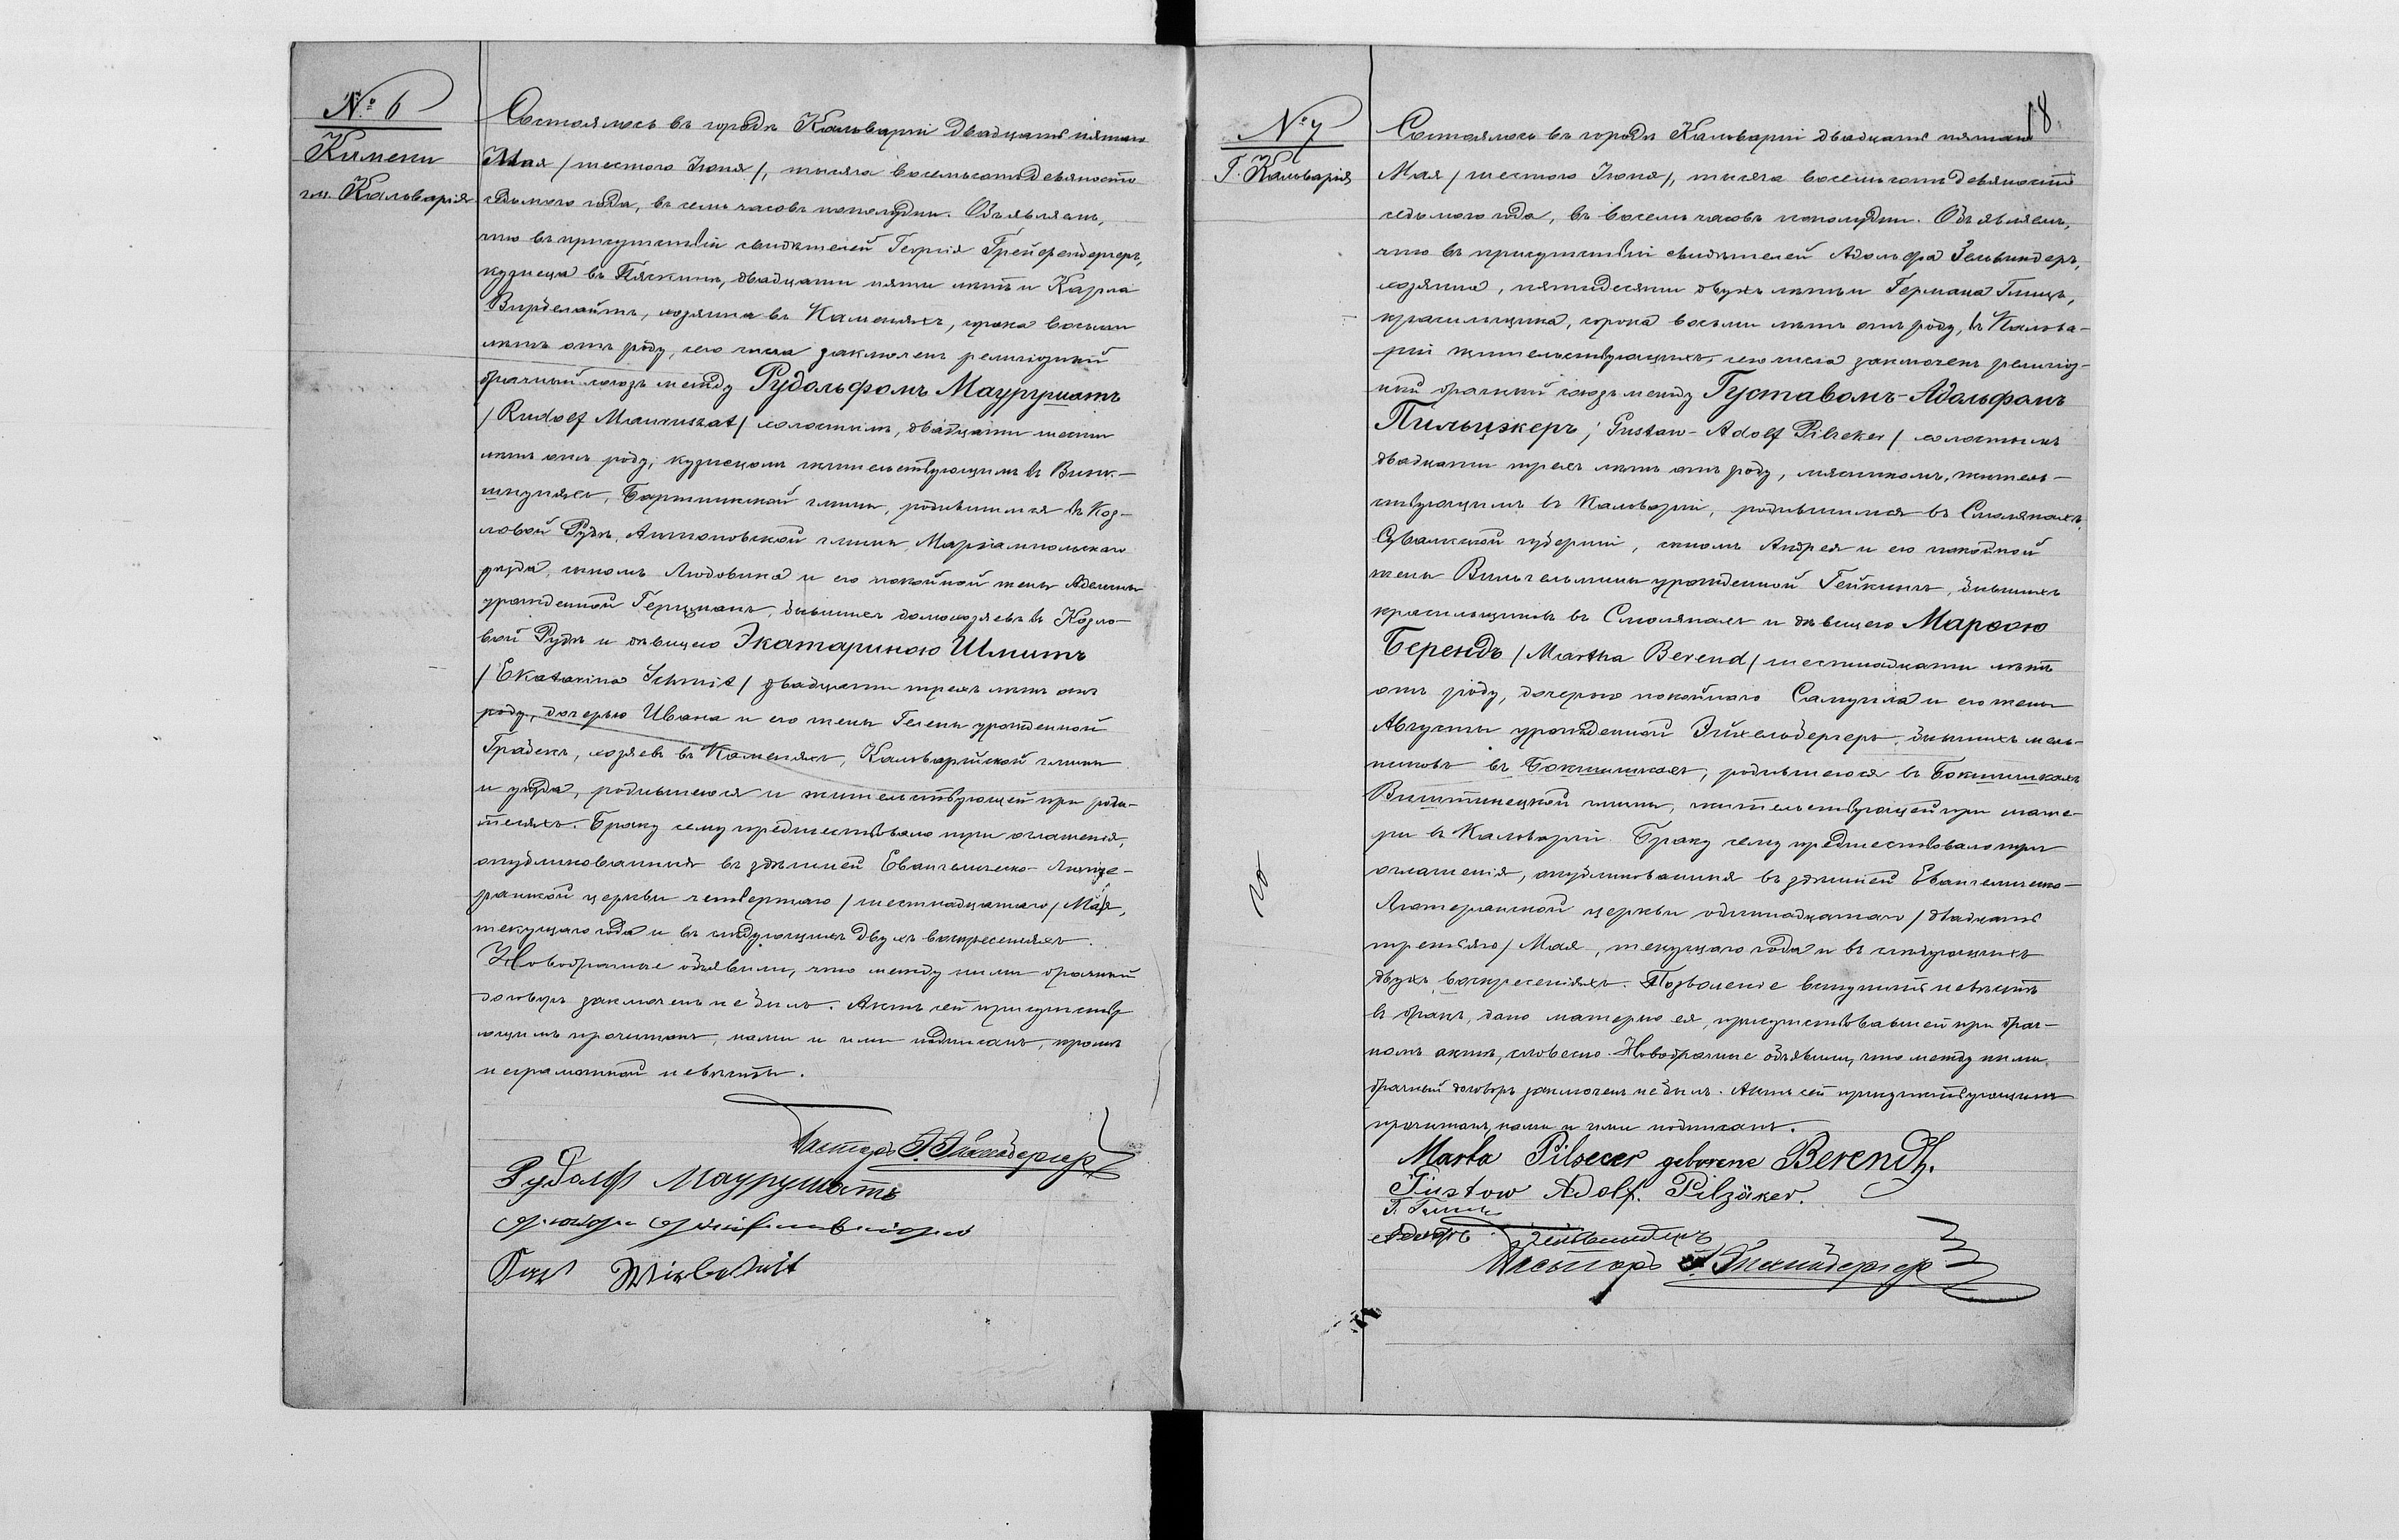 № 6
Камени
гм. Кальварія
Состоялось въ городѣ Кальваріи двадцать пятаго
Мая /шестого Іюня/, тысяча восемьсотъ девяносто
седьмого года, въ семь часовъ пополудни. Объявляемъ,
что въ присутствіи свидѣтелей Георгія Грейфенбергеръ,
кузнеца въ двадцати пяти лѣтъ и Карла
Вирбелайтъ, хозяина въ Каменяхъ, сорока восьми
лѣтъ отъ роду, сего числа заключенъ религіозный
брачный союзъ между Рудольфомъ Маурушатъ
/Rudolf Mauruszat/ холостымъ, двадцати шести
лѣтъ отъ роду, кузнецомъ жительствующимъ въ Винк-
Бартникской гмины, родившимся въ Коз-
ловой Рудѣ, Антоновской гмины, Маріампольскаго
уѣзда, сыномъ Людовика и его покойной жены Аделины
урожденной Герцманъ, бывшихъ домохозяевъ въ Козло-
вой Рудѣ и дѣвицею Экатариною Шмитъ
/Ekatarina Schmit/ двадцати трехъ лѣтъ отъ
роду, дочерью Ивана и его жены Гелены урожденной
хозяевъ въ Каменяхъ, Кальварійской гмины
и уѣзда, родившеюся и жительствующей при роди-
теляхъ. Браку сему предшествовало три оглашенія,
опубликованныя въ здѣшней Евангелическо-Люте-
ранской церкви четвертаго /шестнадцатаго/ Мая,
текущаго года и въ слѣдующихъ двухъ воскресеніяхъ.
Новобрачные объявили, что между ними брачный
договоръ заключенъ не былъ. Актъ сей присутству
ющимъ прочитанъ, нами и ими подписанъ, кромѣ
неграмотной невѣсты.
Пасторъ
Рудолф Маурушатъ
Karl Wirbeleit
18
№ 7
Г. Кальварія
Состоялось въ городѣ Кальваріи двадцать пятаго
Мая /шестого Іюня/, тысяча восемьсотъ девяносто
седьмого года, въ восемь часовъ пополудни. Объявляемъ,
что въ присутствіи свидѣтелей Адольфа Зельвиндеръ,
хозяина, пятидесяти двухъ лѣтъ и Германа
красильщика, сорока восьми лѣтъ отъ роду, въ Кальва-
ріи жительствующихъ, сего числа заключенъ религіоз-
ный брачный союзъ между Густавомъ-Адольфомъ
Пильцэкеръ / Gustaw-Adolf Pilzeker / холостымъ
двадцати трехъ лѣтъ отъ роду, мясникомъ, житель-
ствующимъ въ Кальваріи, родившимся въ Смолянахъ,
Сувалкской губерніи, сыномъ Андрея и его покойной
жены Вильгельмины урожденной Гейкингъ, бывшихъ
красильщиковъ въ Смолянахъ и дѣвицею Марѳою
Берендъ /Martha Berend/ шестнадцати лѣтъ
отъ роду, дочерью покойнаго Самуила и его жены
Августы урожденной Эйхельбергеръ, бывшихъ мель-
никовъ въ Бокшишкахъ, родившеюся въ Бокшишкахъ
Виштинецкой гмины, жительствующей при мате-
ри въ Кальваріи. Браку сему предшествовало три
оглашенія, опубликованныя въ здѣшней Евангелическо-
Лютеранской церкви одиннадцатаго /двадцать
третьяго/ Мая, текущаго года и въ слѣдующихъ
двухъ воскресеніяхъ. Позволеніе вступить невѣстѣ
въ бракъ, дано матерью ея, присутствовавшей при брач-
номъ актѣ, словесно. Новобрачные объявили, что между ними
брачный договоръ заключенъ не былъ. Актъ сей присутствующимъ
прочитанъ, нами и ими подписанъ.
Marta Pilzecer geborene Berendt.
Gustow Adolf. Pilzäker.
Адолфъ
Пасторъ